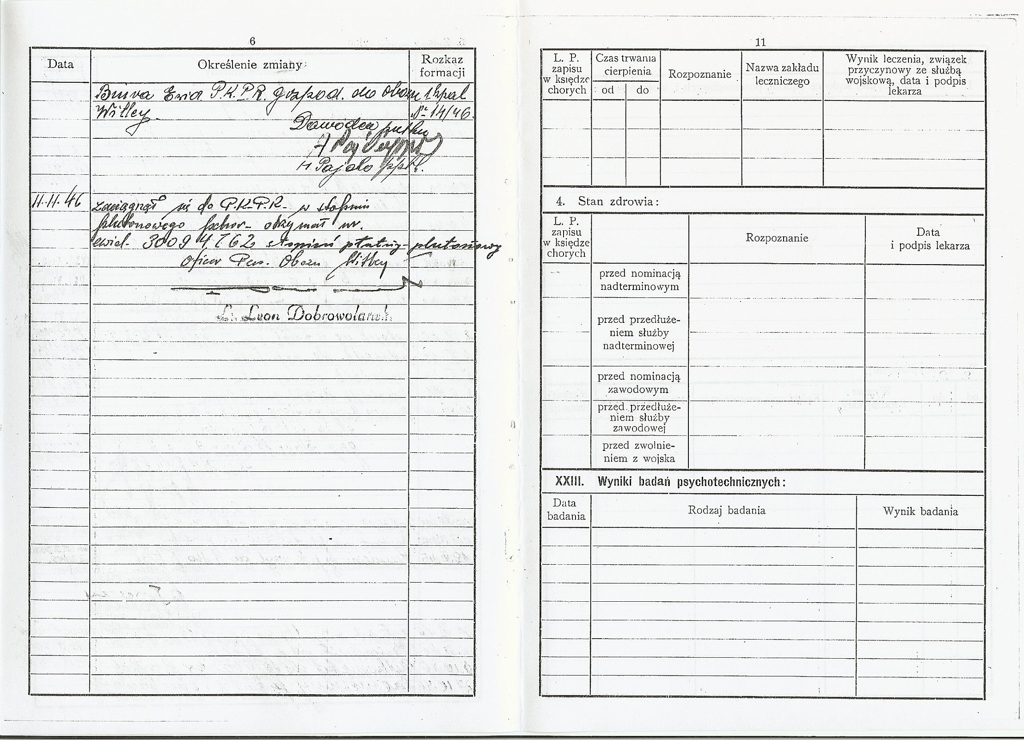 6
Data
Określenie zmiany
Rozkaz
formacji
P.K.P.R. gospod. do obozu
Witley
Nr 14/46.
Dowódca pułku
11.11.46
zaciągnął się do P.K.P.R. w stopniu
plutonowego podchor. otrzymał nr.
ewid. 30094762 stopień płatny plutonowy
Oficer Pers. Obozu Witley
Leon Dobrowolański
11
L. P.
zapisu
w księdze
chorych
Czas trwania
cierpienia
od
do
Rozpoznanie
Nazwa zakładu
leczniczego
Wynik leczenia, związek
przyczynowy ze służbą
wojskową, data i podpis
lekarza
4. Stan zdrowia:
L. P.
zapisu
w księdze
chorych
Rozpoznanie
Data
i podpis lekarza
przed nominacją
nadterminowym
przed przedłuże-
niem służby
nadterminowej
przed nominacją
zawodowym
przed przedłuże-
niem służby
zawodowej
przed zwolnie-
niem z wojska
XXIII. Wyniki badań psychotechnicznych:
Data
badania
Rodzaj badania
Wynik badania